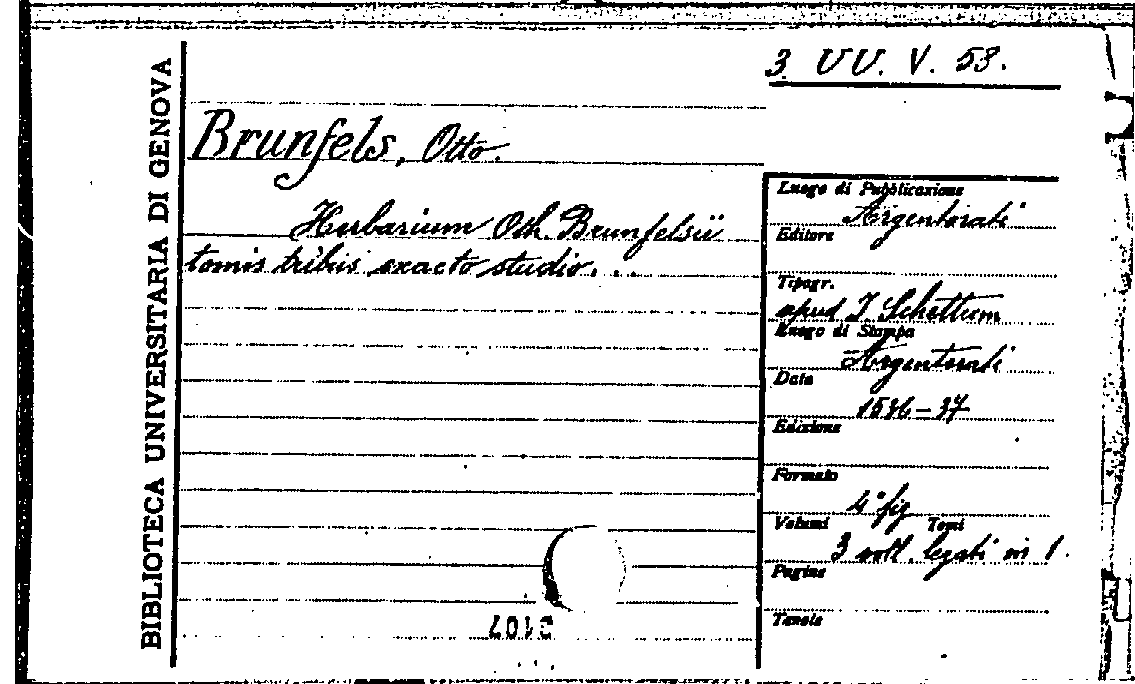 3 UU. V. 53.
BIBLIOTECA UNIVERSITARIA DI GENOVA
Brunfels, Otto.
Herbarium Oth Brunfelsii
tomis tribus exacto studio...
Luogo di Pubblicazione
Argentorati
Editore
Tipogr.
apud I Schottum
Luogo di Stampa
Argentorati
Data
1536-37
Edizione
Formato
4° fig
Volumi Tomi
3 voll. legati in 1.
Pagine
Tavole